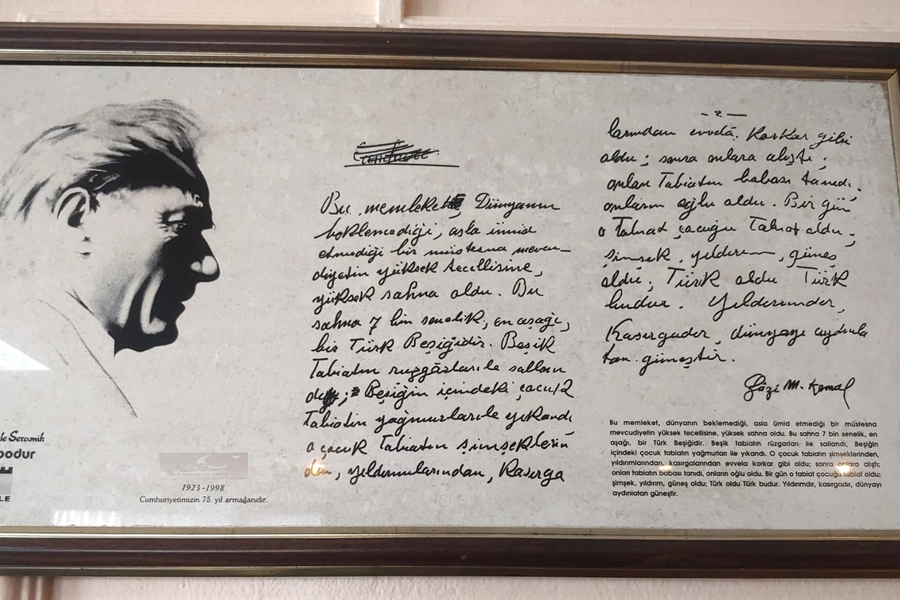 Bu memleket, Dünyanın
beklemediği, asla ümid
etmediği bir müstesna mevcu-
diyetin yüksek tecellisine,
yüksek sahna oldu. Bu
sahna 7 bin senelik, en aşağı,
bir Türk Beşiğidir. Beşik
Tabiatın rüzgârları ile sallan
dı; Beşiğin içindeki çocuk
Tabiatın yağmurlarile yıkandı
o çocuk Tabiatın şimşeklerin
den, yıldırımlarından, Kasırga
- 2 -
larından evvelâ Korkar gibi
oldu; sonra onlara alıştı;
onları Tabiatın babası tanıdı.
onların oğlu oldu. Bir gün
o Tabiat çocuğu Tabiat oldu;
şimşek, yıldırım, güneş
oldu; Türk oldu Türk
budur. Yıldırımdır,
Kasırgadır, dünyayı aydınla
tan güneştir.
Gazi M. Kemal
Bu memleket, dünyanın beklemediği, asla ümid etmediği bir müstesna
mevcudiyetin yüksek tecellisine, yüksek sahna oldu. Bu sahna 7 bin senelik, en
aşağı, bir Türk Beşiğidir. Beşik tabiatın rüzgarları ile sallandı, Beşiğin
içindeki çocuk tabiatın yağmurları ile yıkandı. O çocuk tabiatın şimşeklerinden,
yıldırımlarından kasırgalarından evvela korkar gibi oldu; sonra onlara alıştı;
onları tabiatın babası tanıdı, onların oğlu oldu. Bir gün o tabiat çocuğu tabiat oldu;
şimşek, yıldırım, güneş oldu; Türk oldu Türk budur. Yıldırımdır, kasırgadır, dünyayı
aydınlatan güneştir.
le Seramik
bodur
LE
1923-1998
Cumhuriyetimizin 75. yıl armağanıdır.